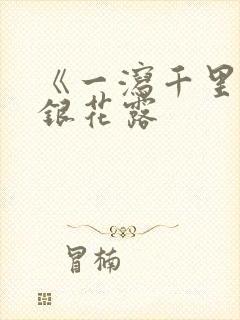 《一瀉千里
銀花露
冒楠